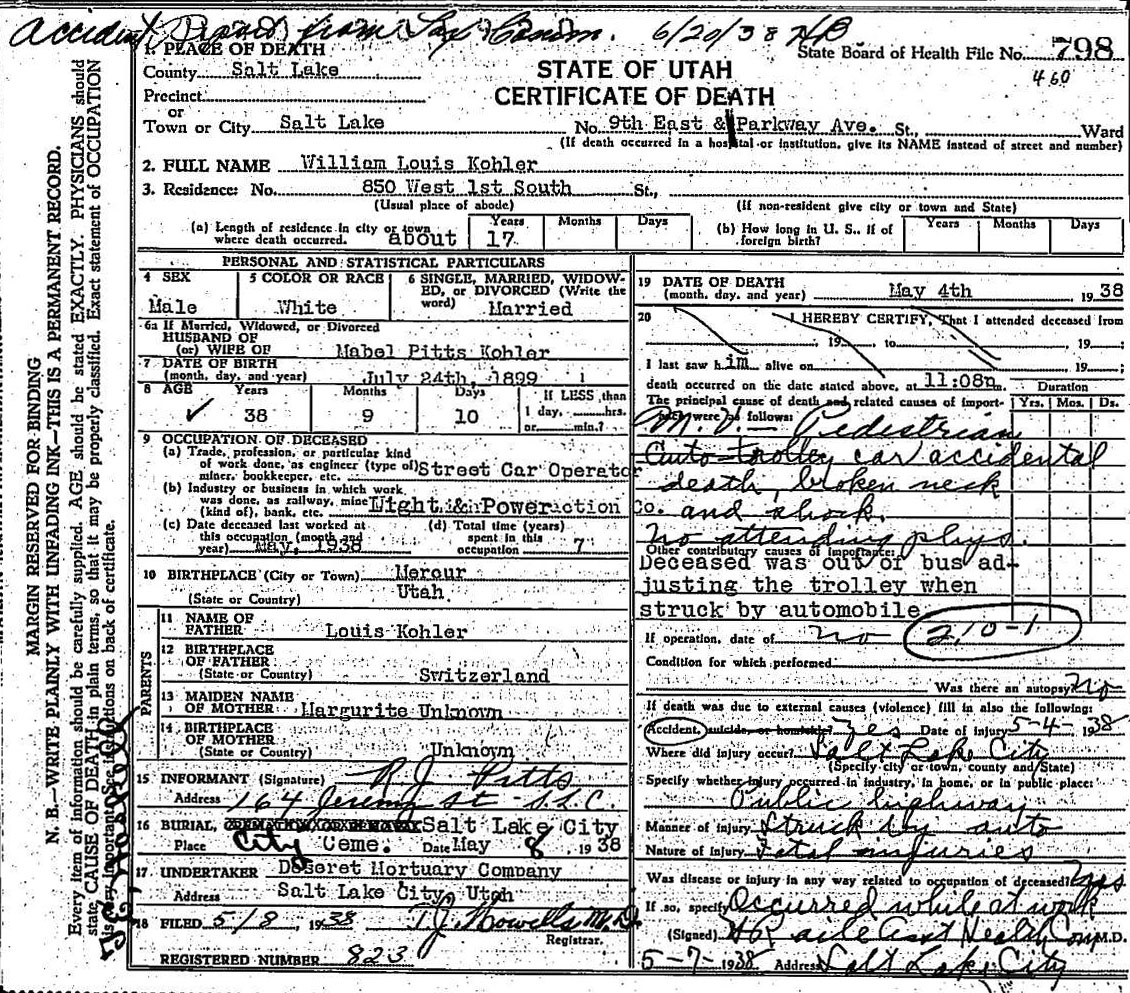 Accident Report from 6/20/38 HB
1. PLACE OF DEATH
State Board of Health File No. 798
County Salt Lake
STATE OF UTAH
460
Precinct
CERTIFICATE OF DEATH
or
Town or City Salt Lake No. 9th East & Parkway Ave. St., Ward
(If death occurred in a hospital or institution, give its NAME instead of street and number)
2. FULL NAME William Louis Kohler
3. Residence: No. 850 West 1st South St.,
(Usual place of abode) (If non-resident give city or town and State)
(a) Length of residence in city or town where death occurred. about 17 Years Months Days
(b) How long in U. S., if of foreign birth? Years Months Days
PERSONAL AND STATISTICAL PARTICULARS
4 SEX Male
5 COLOR OR RACE White
6 SINGLE, MARRIED, WIDOWED, or DIVORCED (Write the word) Married
6a If Married, Widowed, or Divorced
HUSBAND OF
(or) WIFE OF Mabel Pitts Kohler
7 DATE OF BIRTH
(month, day, and year) July 24th, 1899
8 AGE Years Months Days If LESS than
✓ 38 9 10 1 day, hrs.
or min.?
9 OCCUPATION OF DECEASED
(a) Trade, profession, or particular kind
of work done, as engineer (type of)
miner, bookkeeper, etc. Street Car Operator
(b) Industry or business in which work
was done, as railway, mine
(kind of), bank, etc. Light & Power
(c) Date deceased last worked at
this occupation (month and
year) May, 1938
(d) Total time (years)
spent in this
occupation 7
10 BIRTHPLACE (City or Town) Mercur
(State or Country) Utah
PARENTS
11 NAME OF
FATHER Louis Kohler
12 BIRTHPLACE
OF FATHER
(State or Country) Switzerland
13 MAIDEN NAME
OF MOTHER Margurite Unknown
14 BIRTHPLACE
OF MOTHER
(State or Country) Unknown
15 INFORMANT (Signature) R J Pitts
Address 164 Jeremy St S.L.C.
16 BURIAL, Salt Lake City
Place City Ceme. Date May 8, 1938
17 UNDERTAKER Deseret Mortuary Company
Address Salt Lake City, Utah
18 FILED 5/8, 1938 T.J. Howells M.D.
Registrar.
REGISTERED NUMBER 823
19 DATE OF DEATH
(month, day, and year) May 4th 1938
20 I HEREBY CERTIFY, That I attended deceased from
, 19 , to , 19 ;
I last saw h im alive on , 19 ;
death occurred on the date stated above, at 11:08p. Duration
The principal cause of death and related causes of import- Yrs. Mos. Ds.
ance were as follows:
M.V. — Pedestrian
Auto trolley car accidental
death, broken neck
Co. and shock.
No attending phys.
Other contributory causes of importance:
Deceased was out of bus ad-
justing the trolley when
struck by automobile
If operation, date of no 210-1
Condition for which performed
Was there an autopsy? No
If death was due to external causes (violence) fill in also the following:
Accident, suicide, or homicide? Yes Date of injury 5-4-1938
Where did injury occur? Salt Lake City
(Specify city or town, county and State)
Specify whether injury occurred in industry, in home, or in public place:
Public highway
Manner of injury Struck by auto
Nature of Injury Fatal injuries
Was disease or injury in any way related to occupation of deceased? Yes
If so, specify Occurred while at work
(Signed) Asst Health Com M.D.
5-7-1938 Address Salt Lake City
MARGIN RESERVED FOR BINDING
N. B.—WRITE PLAINLY WITH UNFADING INK—THIS IS A PERMANENT RECORD.
Every item of information should be carefully supplied. AGE should be stated EXACTLY. PHYSICIANS should
state CAUSE OF DEATH in plain terms, so that it may be properly classified. Exact statement of OCCUPATION
is very important. See instructions on back of certificate.